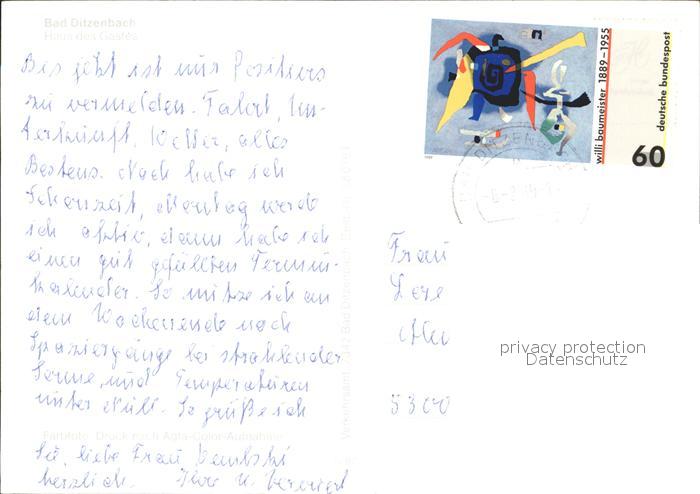 Bad Ditzenbach
Haus des Gastes
Bis jetzt ist nur Positives
zu vermelden. Fahrt, Un-
terkunft, Wetter, alles
Bestens. Noch habe ich
Schonzeit, Montag werde
ich aktiv, dann habe ich
einen gut gefüllten Termin-
kalender. So nütze ich an
dem Wochenende noch
Spaziergänge bei strahlender
Sonne und Temperaturen
unter Null. So grüße ich
Farbfoto: Druck nach Agfa-Color-Aufnahme
Sie, liebe Frau
herzlich. Ihre
willi baumeister 1889-1955
deutsche bundespost
60
Frau
5300
privacy protection
Datenschutz